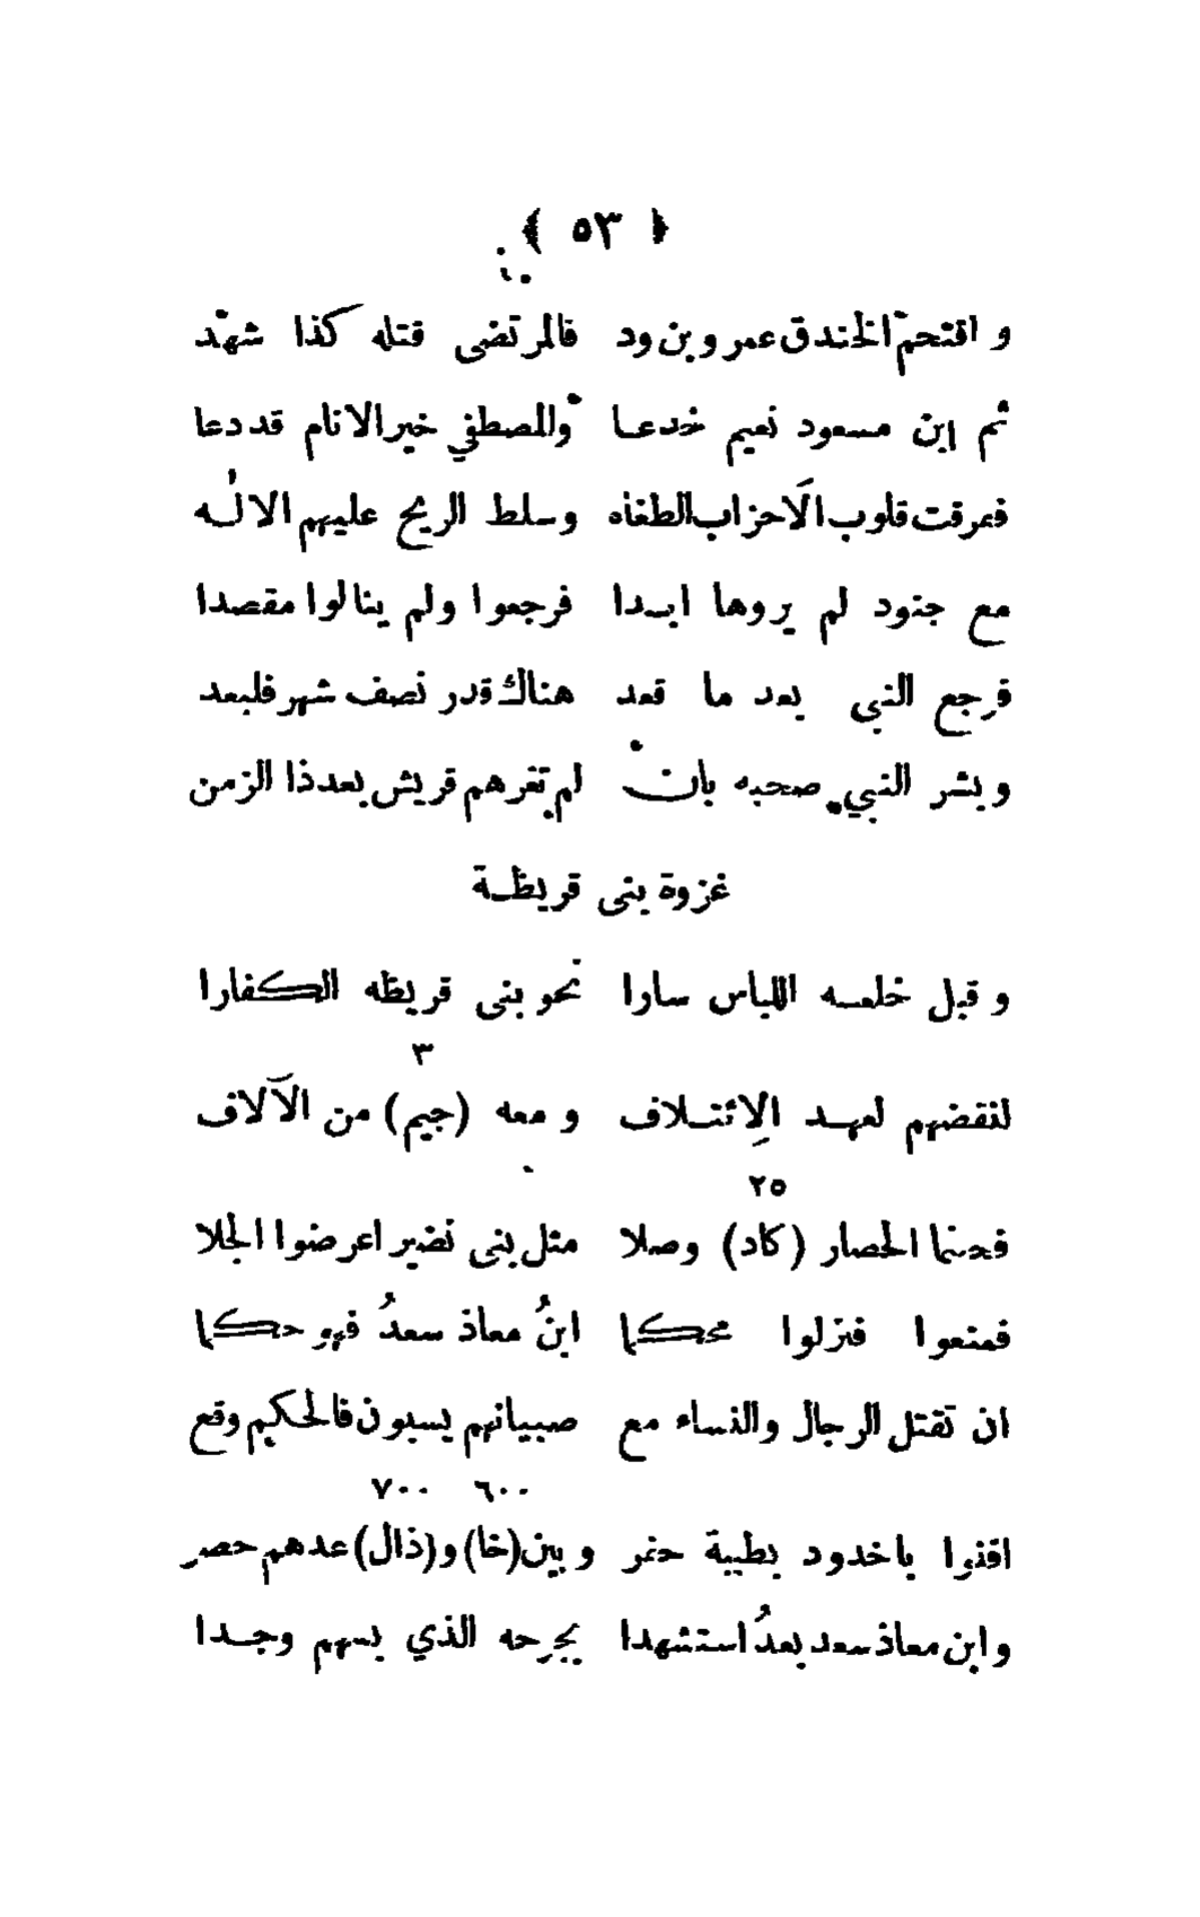 ﴿ ٥٣ ﴾
و اقتحم الخندق عمر وبن ود فالمرتضى قتله كذا شهد
ثم ابن مسعود نعيم خدعا والمصطفي خير الانام قد دعا
فمرقت قلوب الاحزاب الطغاه وسلط الريح عليهم الالٰه
مع جنود لم يروها ابدا فرجعوا ولم ينالوا مقصدا
فرجع النبي بعد ما قعد هناك قدر نصف شهر فليعد
وبشر النبي صحبه بان لم تغرهم قريش بعد ذا الزمن
غزوة بنى قريظة
و قبل خلعه اللباس سارا نحو بنى قريظه الكفارا
لنقضهم لعهد الإئتلاف و معه (جيم) من الآلاف
٣
فحينما الحصار (كاد) وصلا مثل بنى نضير اعرضوا الجلا
٢٥
فمنعوا فنزلوا محكما ابنُ معاذ سعدُ فهو حكما
ان تقتل الرجال والنساء مع صبيانهم يسبون فالحكيم وقع
٦٠٠ ٧٠٠
افنوا باخدود بطيبة حفر وبين (خا) و (ذال) عدهم حصر
وابن معاذ سعد بعدُ استشهدا بجرحه الذي بسهم وجدا